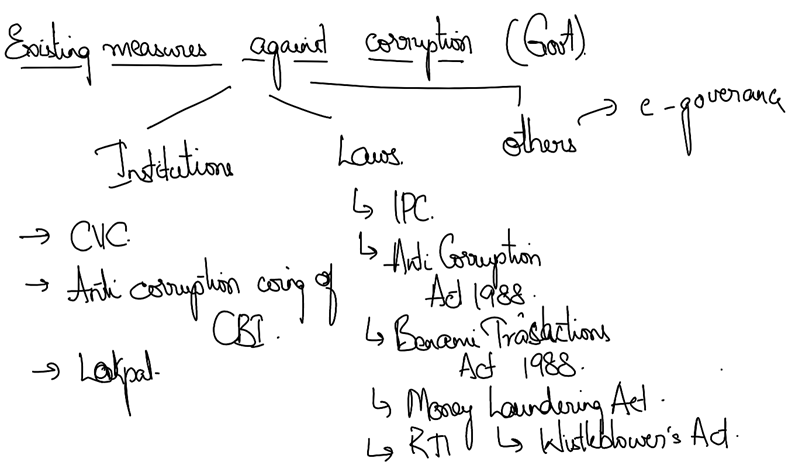 Existing measures against corruption (Govt).
Institutions
Laws.
others → e-goverance
→ CVC.
→ Anti corruption wing of
CBI.
→ Lokpal.
↳ IPC.
↳ Anti Corruption
Act 1988.
↳ Benami Trasactions
Act 1988.
↳ Money Laundering Act.
↳ RTI ↳ Wistleblower's Act.